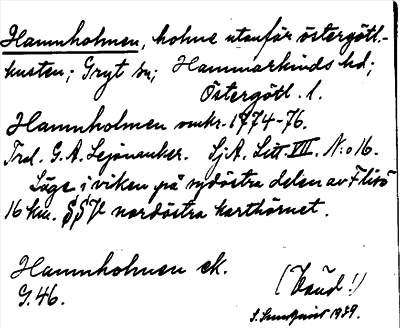 Hamnholmen, holme utanför östergötl.-
kusten; Gryt sn; Hammarkinds hd;
Östergötl. l.
Hamnholmen omkr. 1774-76.
Trol. G. A. Lejonancker. Sj.A. Litt. VII. N:o 16.
Läge i viken på sydöstra delen av Flisö
16 km. SSV nordöstra karthörnet.
Hamnholmen ek.
G. 46.
1939.